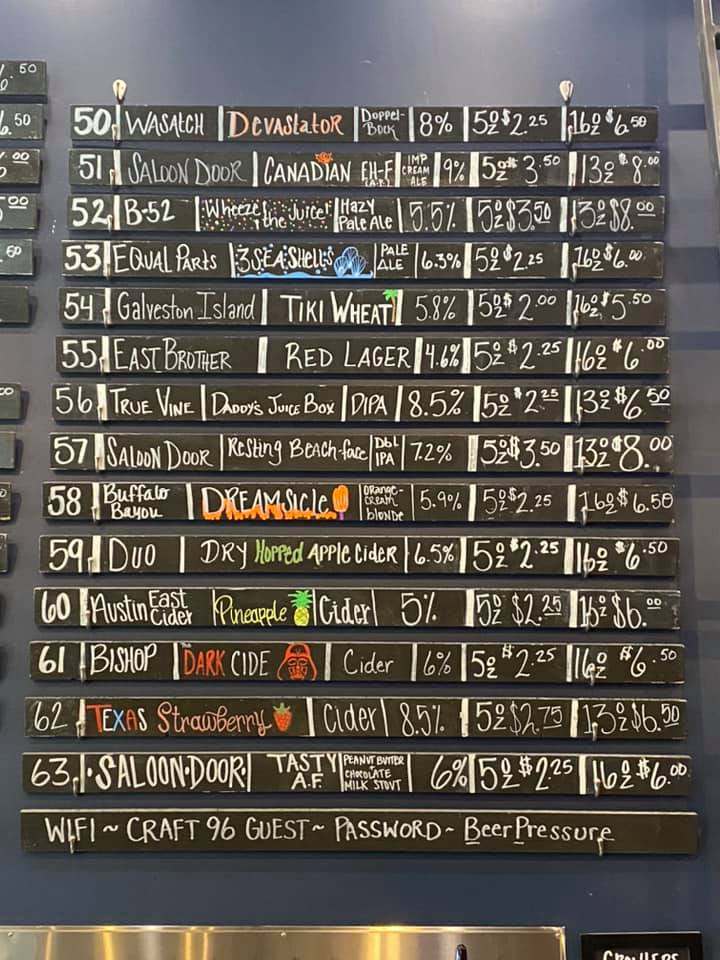 50 WASATCH DEVASTATOR DOPPEL-BOCK 8% 5OZ $2.25 16OZ $6.50
51 SALOON DOOR CANADIAN EH-F IMP CREAM ALE 9% 5OZ $3.50 13OZ $8.00
52 B-52 Wheeze the Juice! Hazy Pale Ale 5.5% 5OZ $3.50 13OZ $8.00
53 EQUAL PARTS 3 SEA SHELLS PALE ALE 6.3% 5OZ $2.25 16OZ $6.00
54 Galveston Island TIKI WHEAT 5.8% 5OZ $2.00 16OZ $5.50
55 EAST BROTHER RED LAGER 4.6% 5OZ $2.25 16OZ $6.00
56 TRUE VINE DADDY'S JUICE BOX DIPA 8.5% 5OZ $2.25 13OZ $6.50
57 SALOON DOOR Resting Beach-face Dbl IPA 7.2% 5OZ $3.50 13OZ $8.00
58 Buffalo Bayou DREAMSICLE Orange-Cream blonde 5.9% 5OZ $2.25 16OZ $6.50
59 DUO DRY Hopped APPLE CIDER 6.5% 5OZ $2.25 16OZ $6.50
60 Austin East Cider Pineapple Cider 5% 5OZ $2.25 16OZ $6.00
61 BISHOP The DARK CIDE Cider 6% 5OZ $2.25 16OZ $6.50
62 TEXAS Strawberry Cider 8.5% 5OZ $2.75 13OZ $6.50
63 ·SALOON·DOOR· TASTY A.F. PEANUT BUTTER + CHOCOLATE MILK STOUT 6% 5OZ $2.25 16OZ $6.00
WIFI ~ CRAFT 96 GUEST ~ PASSWORD - BeerPressure